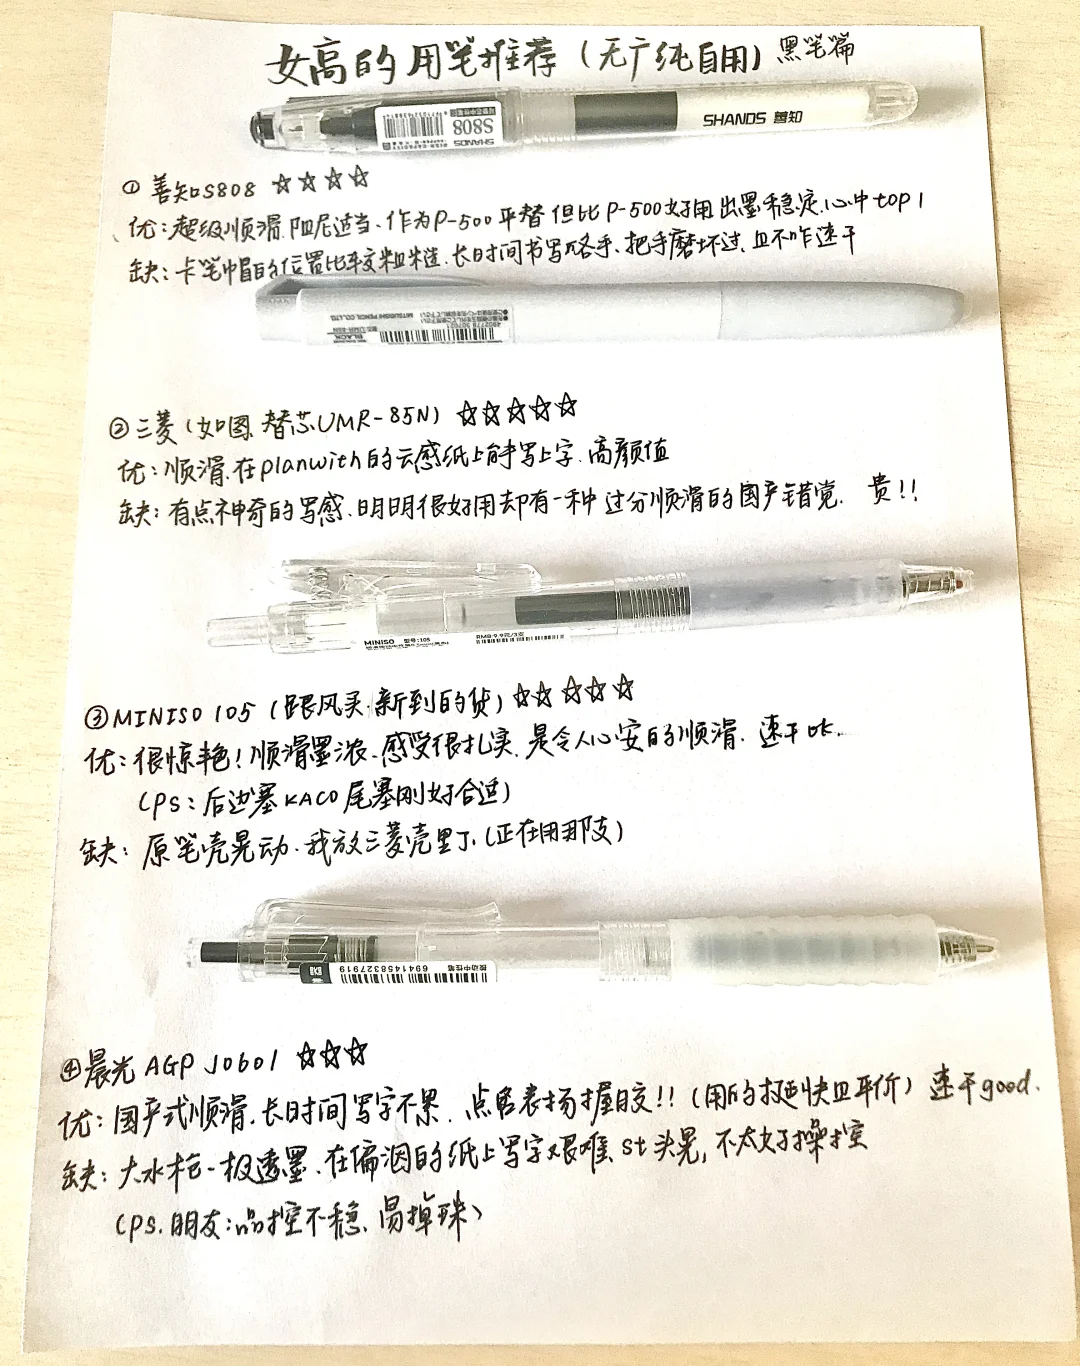 女高的用笔推荐(无广纯自用)黑笔篇
SHANDS
S808
SHANDS 善知
①善知S808 ☆☆☆☆
优:超级顺滑.阻尼适当、作为P-500平替但比P-500好用.出墨稳定.心中top1
缺:卡笔帽的位置比较粗糙.长时间书写硌手、把手磨坏过,且不咋速干
MITSUBISHI PENCIL CO.,LTD.
UMR-85N
BLACK
4902778 307021
②三菱(如图.替芯UMR-85N) ☆☆☆☆☆
优:顺滑.在planwith的云感纸上能写上字.高颜值
缺:有点神奇的写感、明明很好用却有一种过分顺滑的国产错觉. 贵!!
MINISO 型号:105 RMB 9.9元/3支
③MINISO 105(跟风买.新到的货)☆☆☆☆☆
优:很惊艳!顺滑墨浓、感受很扎实、是令人心安的顺滑. 速干ok.
(PS:后边塞KACO尾塞刚好合适)
缺:原笔壳晃动.我放三菱壳里了.(正在用那支)
6941458327919
按动中性笔
④晨光AGP J0601 ☆☆☆
优:国产式顺滑、长时间写字不累、点名表扬握胶!!(用的挺快且平价)速干good.
缺:大水枪-极透墨、在偏洇的纸上写字艰难.st头晃,不太好操控
(PS.朋友:品控不稳、易掉珠)